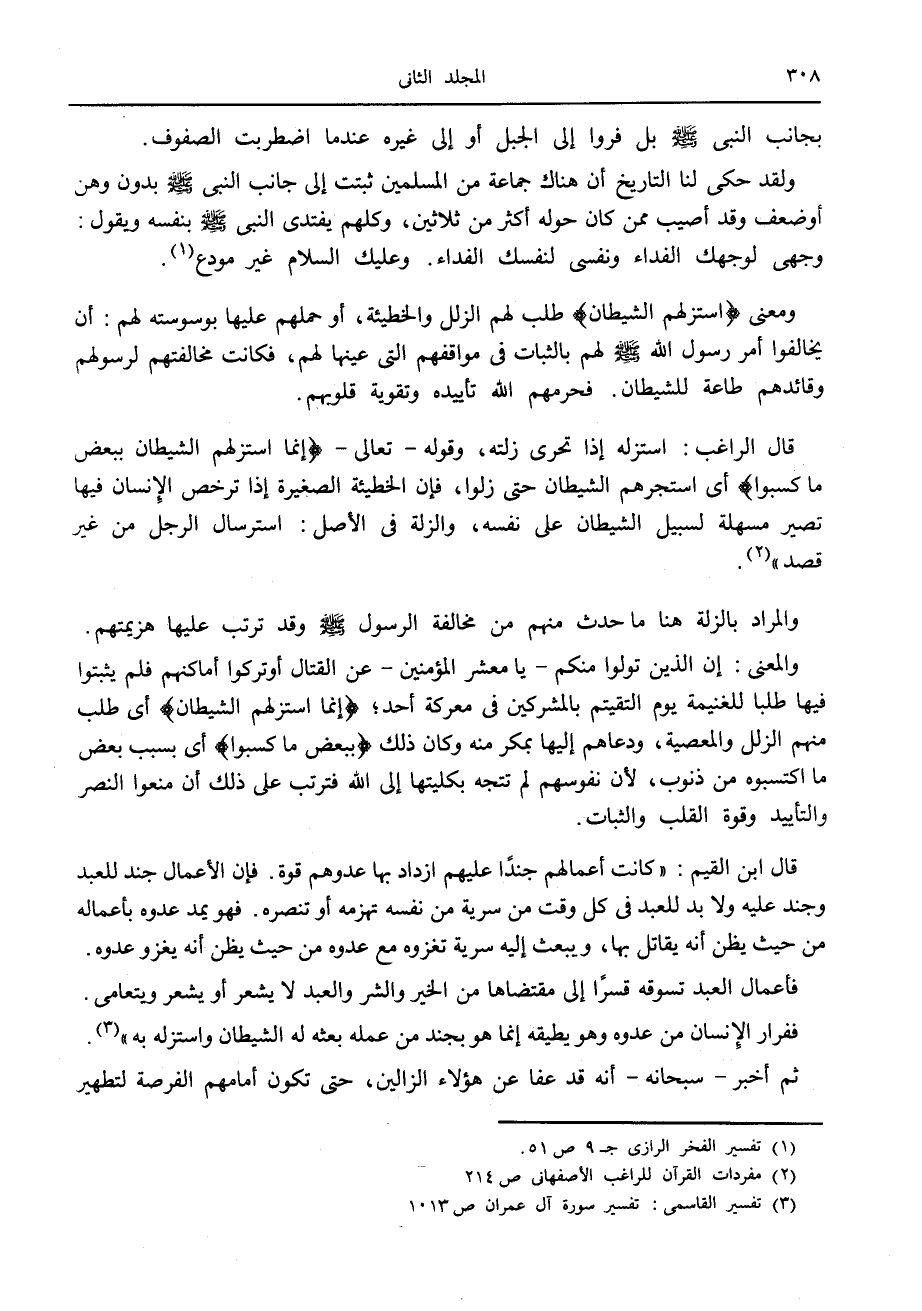 ٣٠٨
المجلد الثانى
بجانب النبى ﷺ بل فروا إلى الجبل أو إلى غيره عندما اضطربت الصفوف.
ولقد حكى لنا التاريخ أن هناك جماعة من المسلمين ثبتت إلى جانب النبى ﷺ بدون وهن
أوضعف وقد أصيب ممن كان حوله أكثر من ثلاثين، وكلهم يفتدى النبى ﷺ بنفسه ويقول :
وجهى لوجهك الفداء ونفسى لنفسك الفداء. وعليك السلام غير مودع(١).
ومعنى ﴿استزلهم الشيطان﴾ طلب لهم الزلل والخطيئة، أو حملهم عليها بوسوسته لهم : أن
يخالفوا أمر رسول الله ﷺ لهم بالثبات فى مواقفهم التى عينها لهم، فكانت مخالفتهم لرسولهم
وقائدهم طاعة للشيطان. فحرمهم الله تأييده وتقوية قلوبهم.
قال الراغب : استزله إذا تحرى زلته، وقوله - تعالى - ﴿إنما استزلهم الشيطان ببعض
ما كسبوا﴾ أى استجرهم الشيطان حتى زلوا، فإن الخطيئة الصغيرة إذا ترخص الإنسان فيها
تصير مسهلة لسبيل الشيطان على نفسه، والزلة فى الأصل : استرسال الرجل من غير
قصد»(٢).
والمراد بالزلة هنا ما حدث منهم من مخالفة الرسول ﷺ وقد ترتب عليها هزيمتهم.
والمعنى : إن الذين تولوا منكم - يا معشر المؤمنين - عن القتال أوتركوا أماكنهم فلم يثبتوا
فيها طلبا للغنيمة يوم التقيتم بالمشركين فى معركة أحد؛ ﴿إنما استزلهم الشيطان﴾ أى طلب
منهم الزلل والمعصية، ودعاهم إليها بمكر منه وكان ذلك ﴿ببعض ما كسبوا﴾ أى بسبب بعض
ما اكتسبوه من ذنوب، لأن نفوسهم لم تتجه بكليتها إلى الله فترتب على ذلك أن منعوا النصر
والتأييد وقوة القلب والثبات.
قال ابن القيم : «كانت أعمالهم جندًا عليهم ازداد بها عدوهم قوة. فإن الأعمال جند للعبد
وجند عليه ولا بد للعبد فى كل وقت من سرية من نفسه تهزمه أو تنصره. فهو يمد عدوه بأعماله
من حيث يظن أنه يقاتل بها، ويبعث إليه سرية تغزوه مع عدوه من حيث يظن أنه يغزو عدوه.
فأعمال العبد تسوقه قسرًا إلى مقتضاها من الخير والشر والعبد لا يشعر أو يشعر ويتعامى.
ففرار الإنسان من عدوه وهو يطيقه إنما هو بجند من عمله بعثه له الشيطان واستزله به»(٣).
ثم أخبر - سبحانه - أنه قد عفا عن هؤلاء الزالين، حتى تكون أمامهم الفرصة لتطهير
(١) تفسير الفخر الرازى جـ ٩ ص ٥١.
(٢) مفردات القرآن للراغب الأصفهانى ص ٢١٤
(٣) تفسير القاسمى : تفسير سورة آل عمران ص ١٠١٣